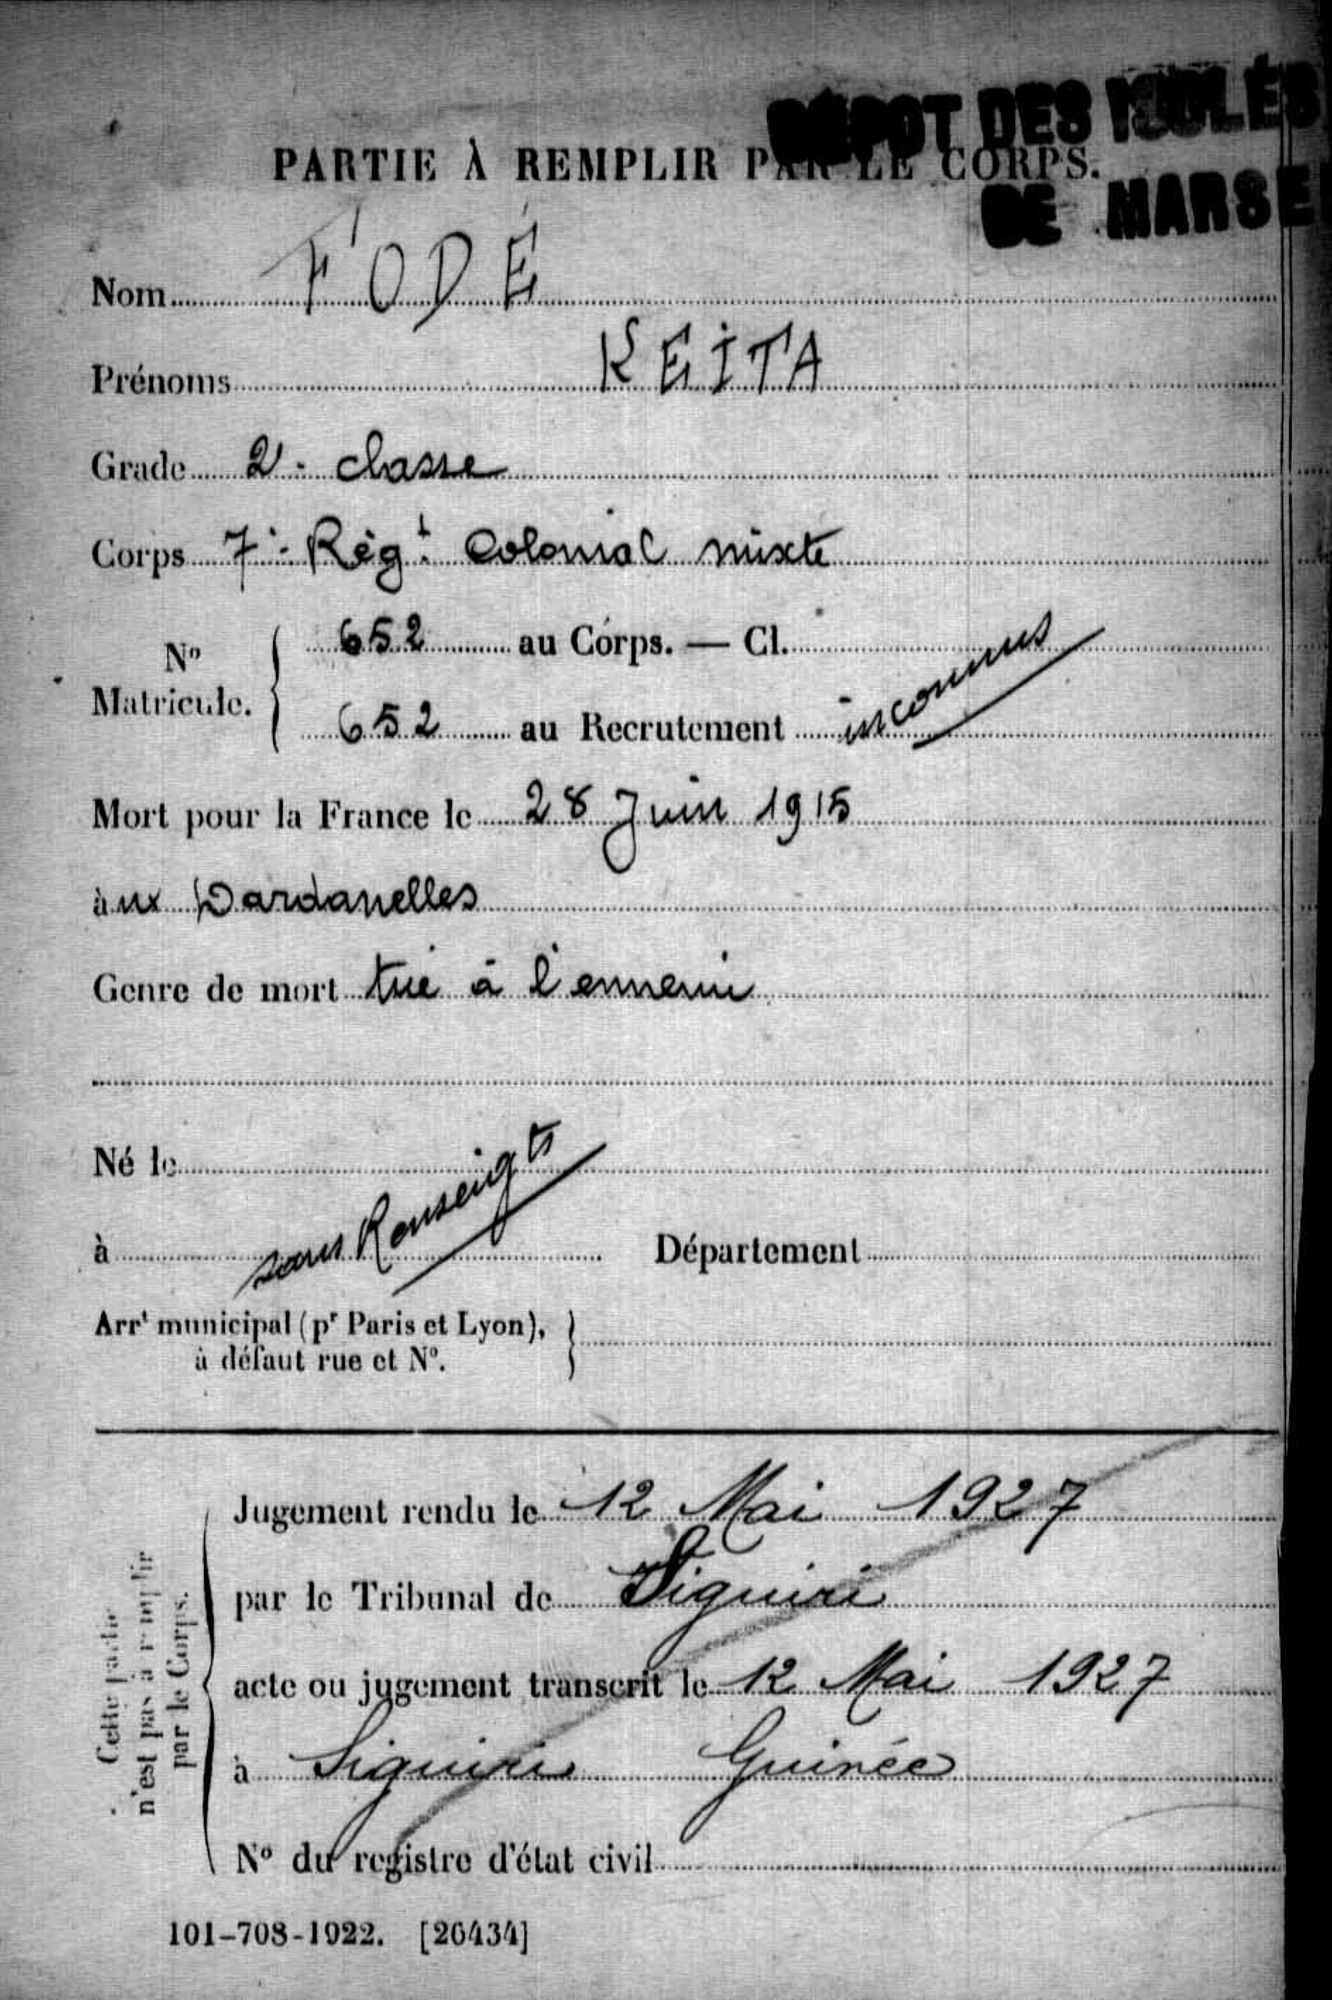 DÉPOT DES ISOLÉS
DE MARSE
PARTIE À REMPLIR PAR LE CORPS.
Nom FODÉ
Prénoms KEITA
Grade 2e classe
Corps 7e Régt Colonial mixte
No Matricule. { 652 au Corps. — Cl. inconnus
652 au Recrutement
Mort pour la France le 28 Juin 1915
àux Dardanelles
Genre de mort tué à l'ennemi
Né le
à sans Renseigts Département
Arrt municipal (pr Paris et Lyon), }
à défaut rue et No.
Cette partie
n'est pas à remplir
par le Corps.
Jugement rendu le 12 Mai 1927
par le Tribunal de Siguiri
acte ou jugement transcrit le 12 Mai 1927
à Siguiri Guinée
No du registre d'état civil
101-708-1922. [26434]